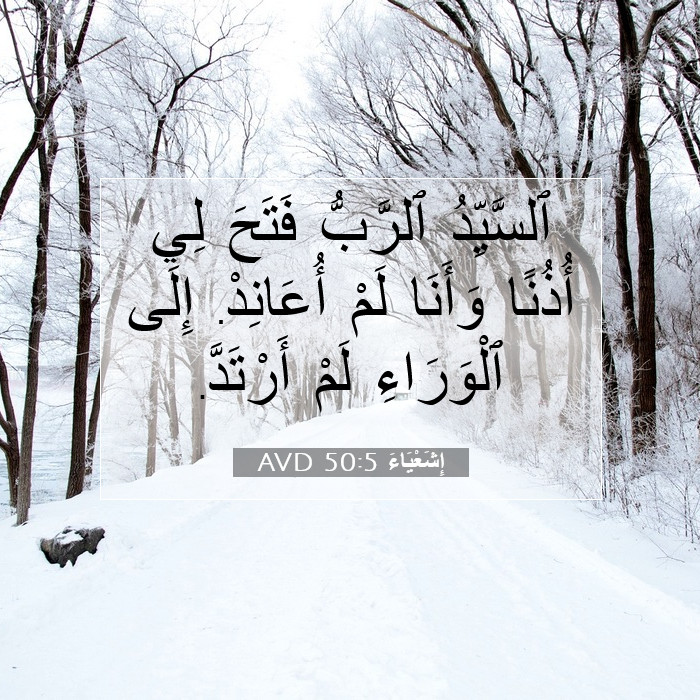 ٱلسَّيِّدُ ٱلرَّبُّ فَتَحَ لِي
أُذُنًا وَأَنَا لَمْ أُعَانِدْ. إِلَى
ٱلْوَرَاءِ لَمْ أَرْتَدَّ.
إِشَعْيَاءَ 50:5 AVD